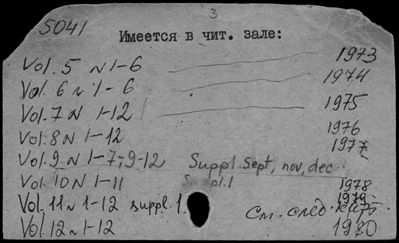 3
5041
Имеется в чит. зале:
Vol. 5 N 1-6 1973
Vol. 6 N 1-6 1974
Vol. 7 N 1-12 1975
Vol. 8 N 1-12 1976
Vol. 9 N 1-7, 9-12 Suppl. Sept, nov, dec 1977
Vol. 10 N 1-11 Suppl. 1 1978
Vol. 11 N 1-12 suppl. 1. 1979
Vol. 12 N 1-12 См. след. карт. 1980